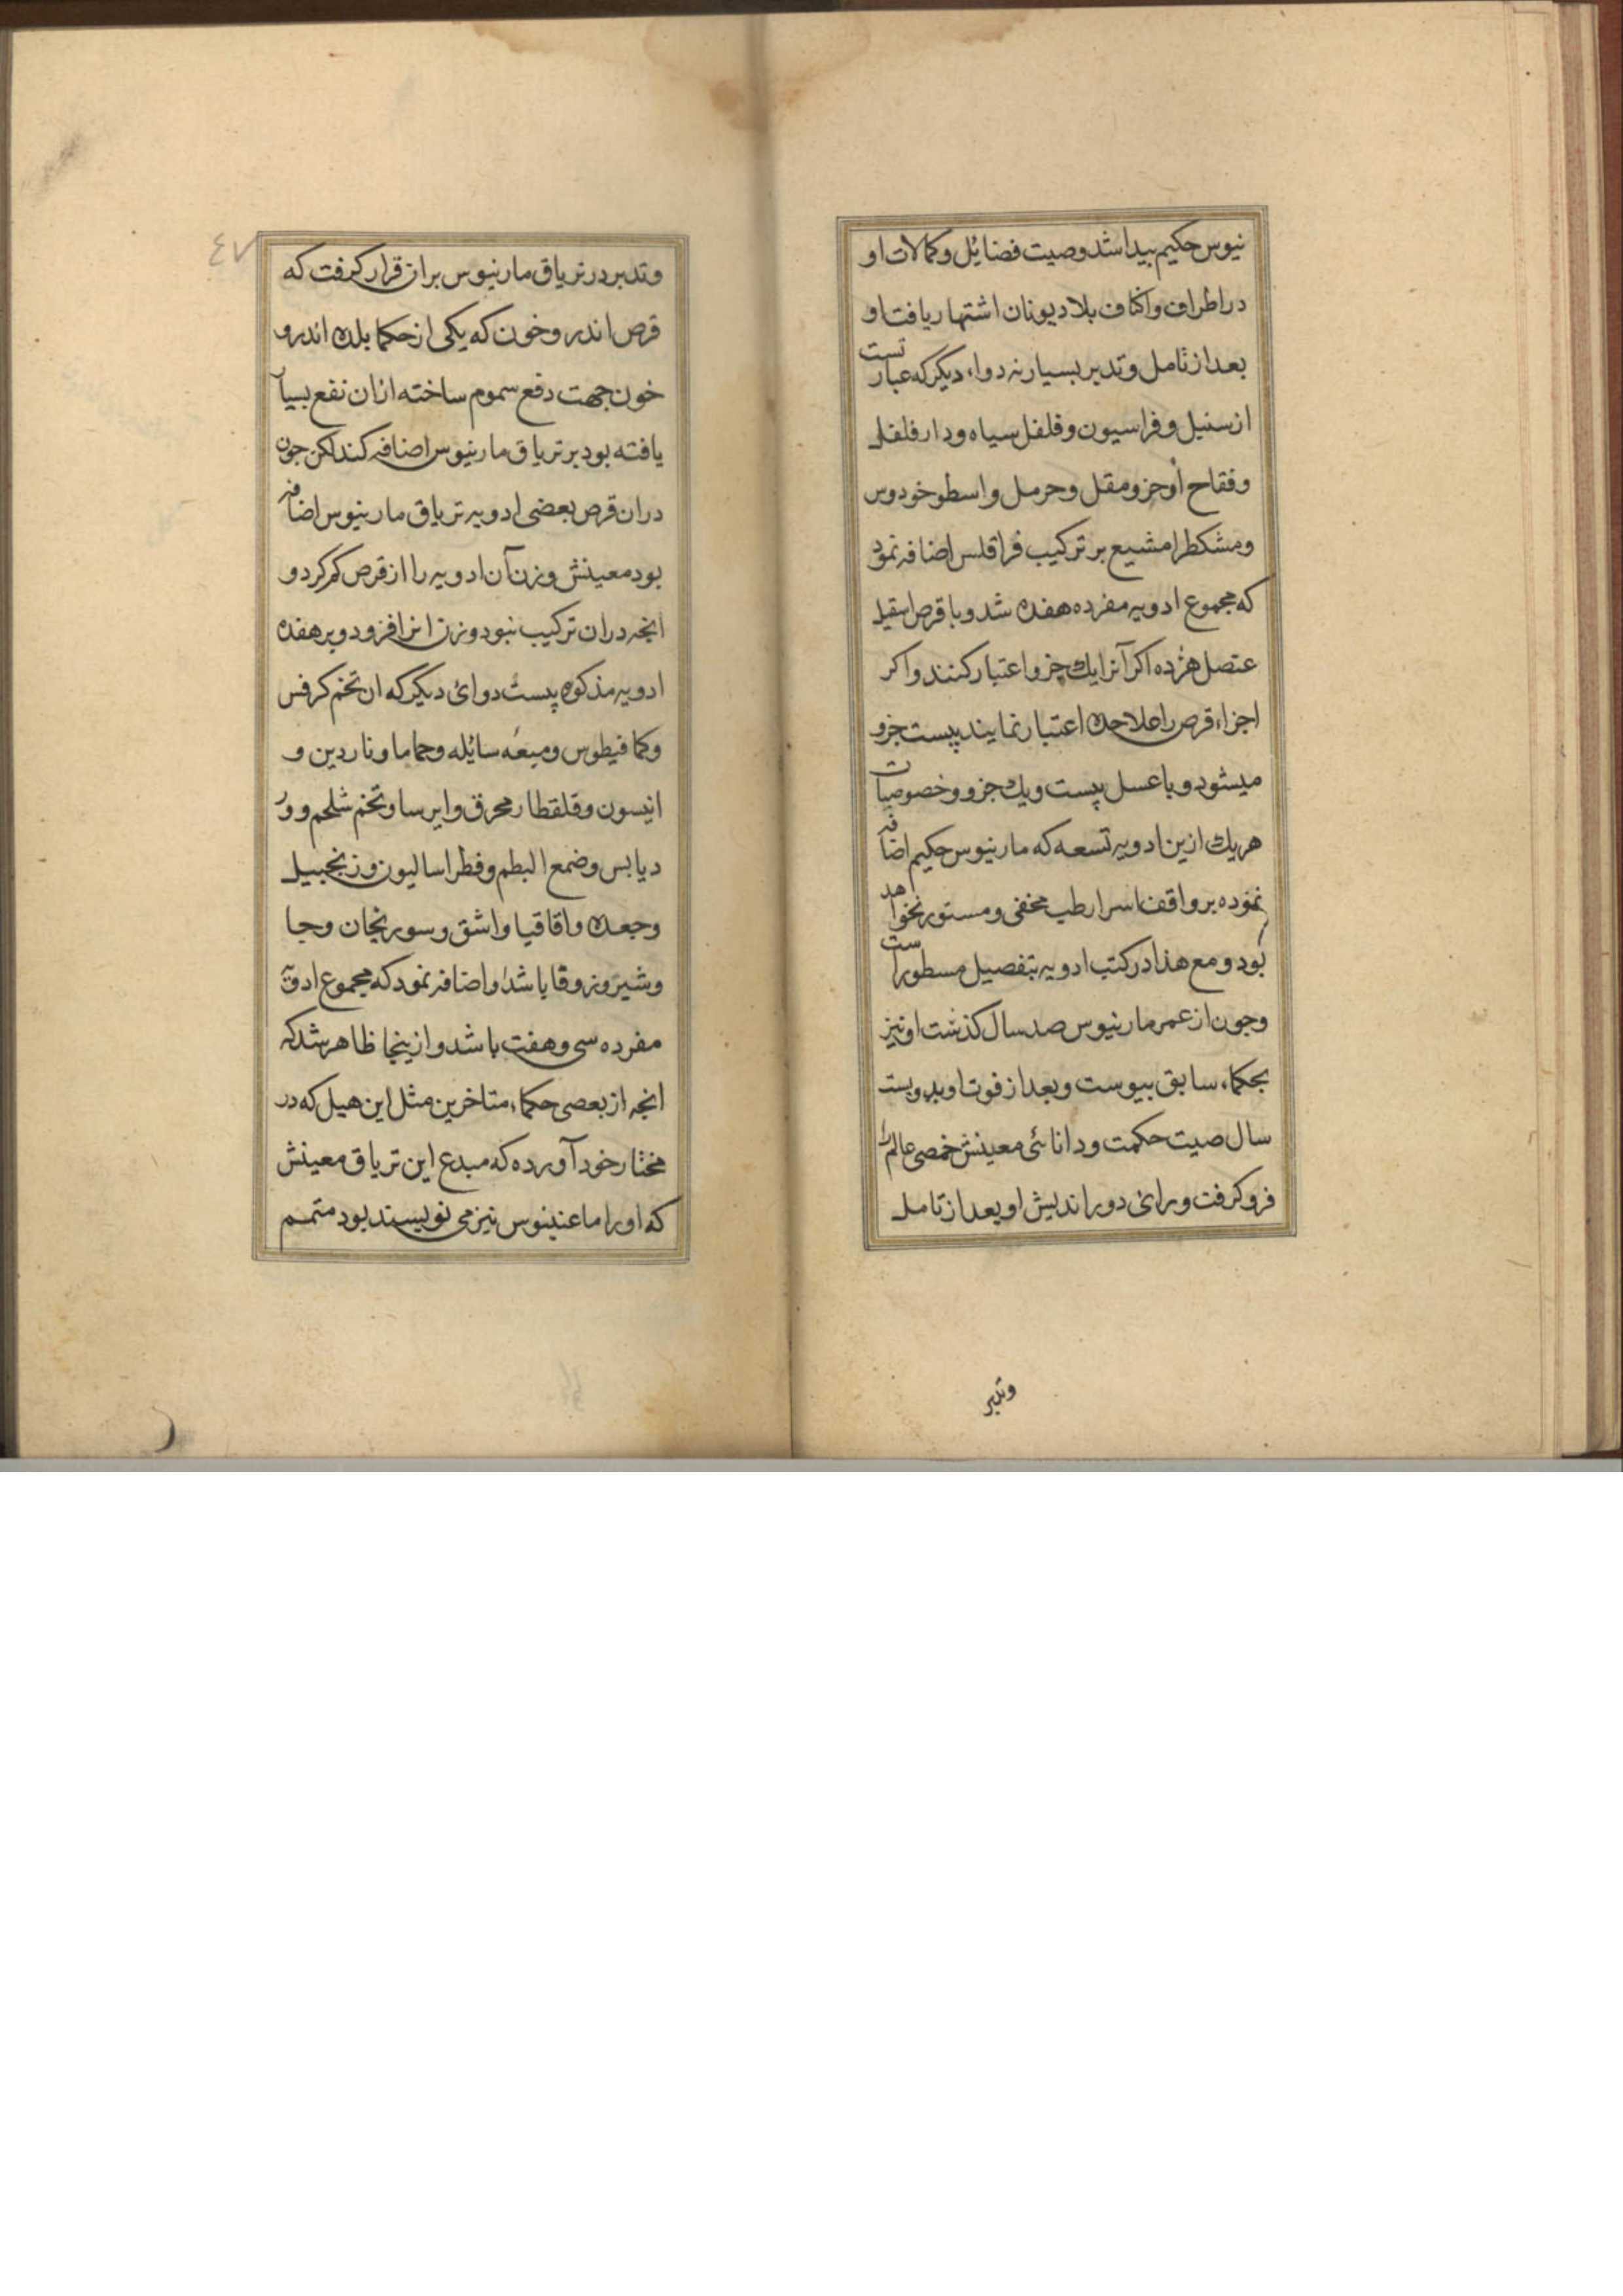 نیوس حکیم بیدا شد وصیت فضایٔل و کمالات او
در اطراف و اکناف بلاد یونان اشتهار یافت او
بعد از تامل و تدبر بسیار نه دواء دیکر که عبارتست
از سنبل و فراسیون و فلفل سیاه و دارفلفل
و فقاح اوخر و مقل و حرمل و اسطوخودوس
و مشکطرامشیع بر ترکیب فراقلس اضافه نمود
که مجموع ادویه مفرده هفده شد و با قرص اسقیل
عنصل هژده اکر آنرا یك جزو اعتبار کنند و اکر
اجزاء قرص را علاحده اعتبار نمایند بیست جزو
میشود و با عسل بیست و یك جزو و خصوصیات
هر یك ازین ادویه تسعه که مارنیوس حکیم اضافه
نموده بر واقف اسرار طب مخفی و مستور نخواهد
بود و مع هذا در کتب ادویه بتفصیل مسطور است
و جون از عمر مارنیوس صد سال کذشت او نیز
بحکماء سابق بیوست و بعد از فوت او بدویست
سال صیت حکمت و دانائی معینش حمصی عالم را
فرو کرفت و رای دور اندیش او بعد از تامل
وتدبر
٤٧
و تدبر در تریاق مارنیوس بران قرار کرفت که
قرص اندروخون که یکی از حکما بلده اندرو
خون جهت دفع سموم ساخته ازان نفع بسیار
یافته بود بر تریاق مارنیوس اضافه کند لکن جون
دران قرص بعضی ادویه تریاق مارنیوس اضافه
بود معینش وزن آن ادویه را از قرص کم کرد و
انجه دران ترکیب نبود وزن انرا افزود و بر هفده
ادویه مذکوره بیست دوائ دیکر که ان تخم کرفس
و کمافیطوس و میعه سائله و حماما و ناردین و
انیسون و قلقطار محرق و ایرسا و تخم شلجم و ور
د یابس و ضمغ البطم و فطراسالیون و زنجبیل
و جعده و اقاقیا و اشق و سورنجان و جا
و شیر و زوفا باشد اضافه نمود که مجموع ادویه
مفرده سی و هفت باشد و ازینجا ظاهر شد که
انجه از بعصی حکماء متاخرین مثل ابن هبل که در
مختار خود آورده که مبدع این تریاق معینش
که او را ماعنینوس نیز می نویسند بود متمم